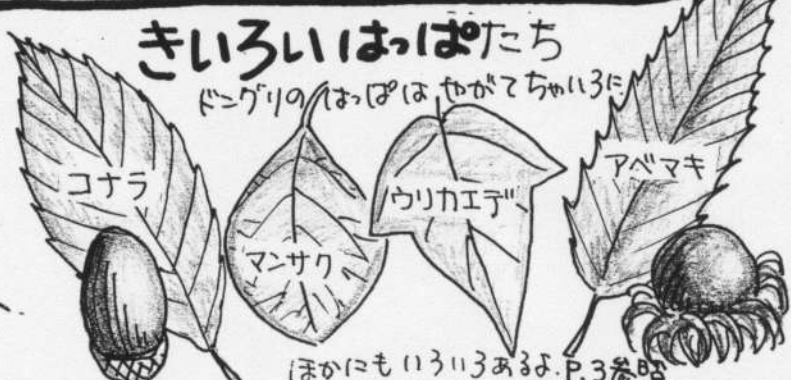 きいろいはっぱたち
ドングリのはっぱは やがてちゃいろに
コナラ
マンサク
ウリカエデ
アベマキ
ほかにもいろいろあるよ.P.3参照